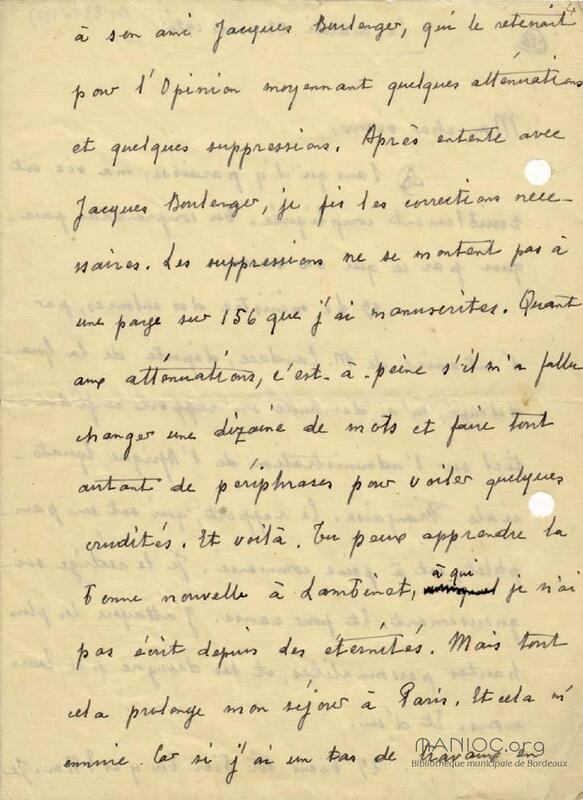 4
à son ami Jacques Boulenger, qui le retenait
pour l'Opinion moyennant quelques atténuations
et quelques suppressions. Après entente avec
Jacques Boulenger, je fis les corrections néce-
ssaires. Les suppressions ne se montent pas à
une parge sur 156 que j'ai manuscrites. Quant
aux atténuations, c'est-à-peine s'il m'a fallu
changer une dizaine de mots et faire tout
autant de périphrases pour voiler quelques
crudités. Et voilà. Tu peux apprendre la
bonne nouvelle à Lambinet, à qui je n'ai
pas écrit depuis des éternités. Mais tout
cela prolonge mon séjour à Paris. Et cela m'
ennuie. Car si j'ai un tas de travaux en
MANIOC.org
Bibliothèque municipale de Bordeaux